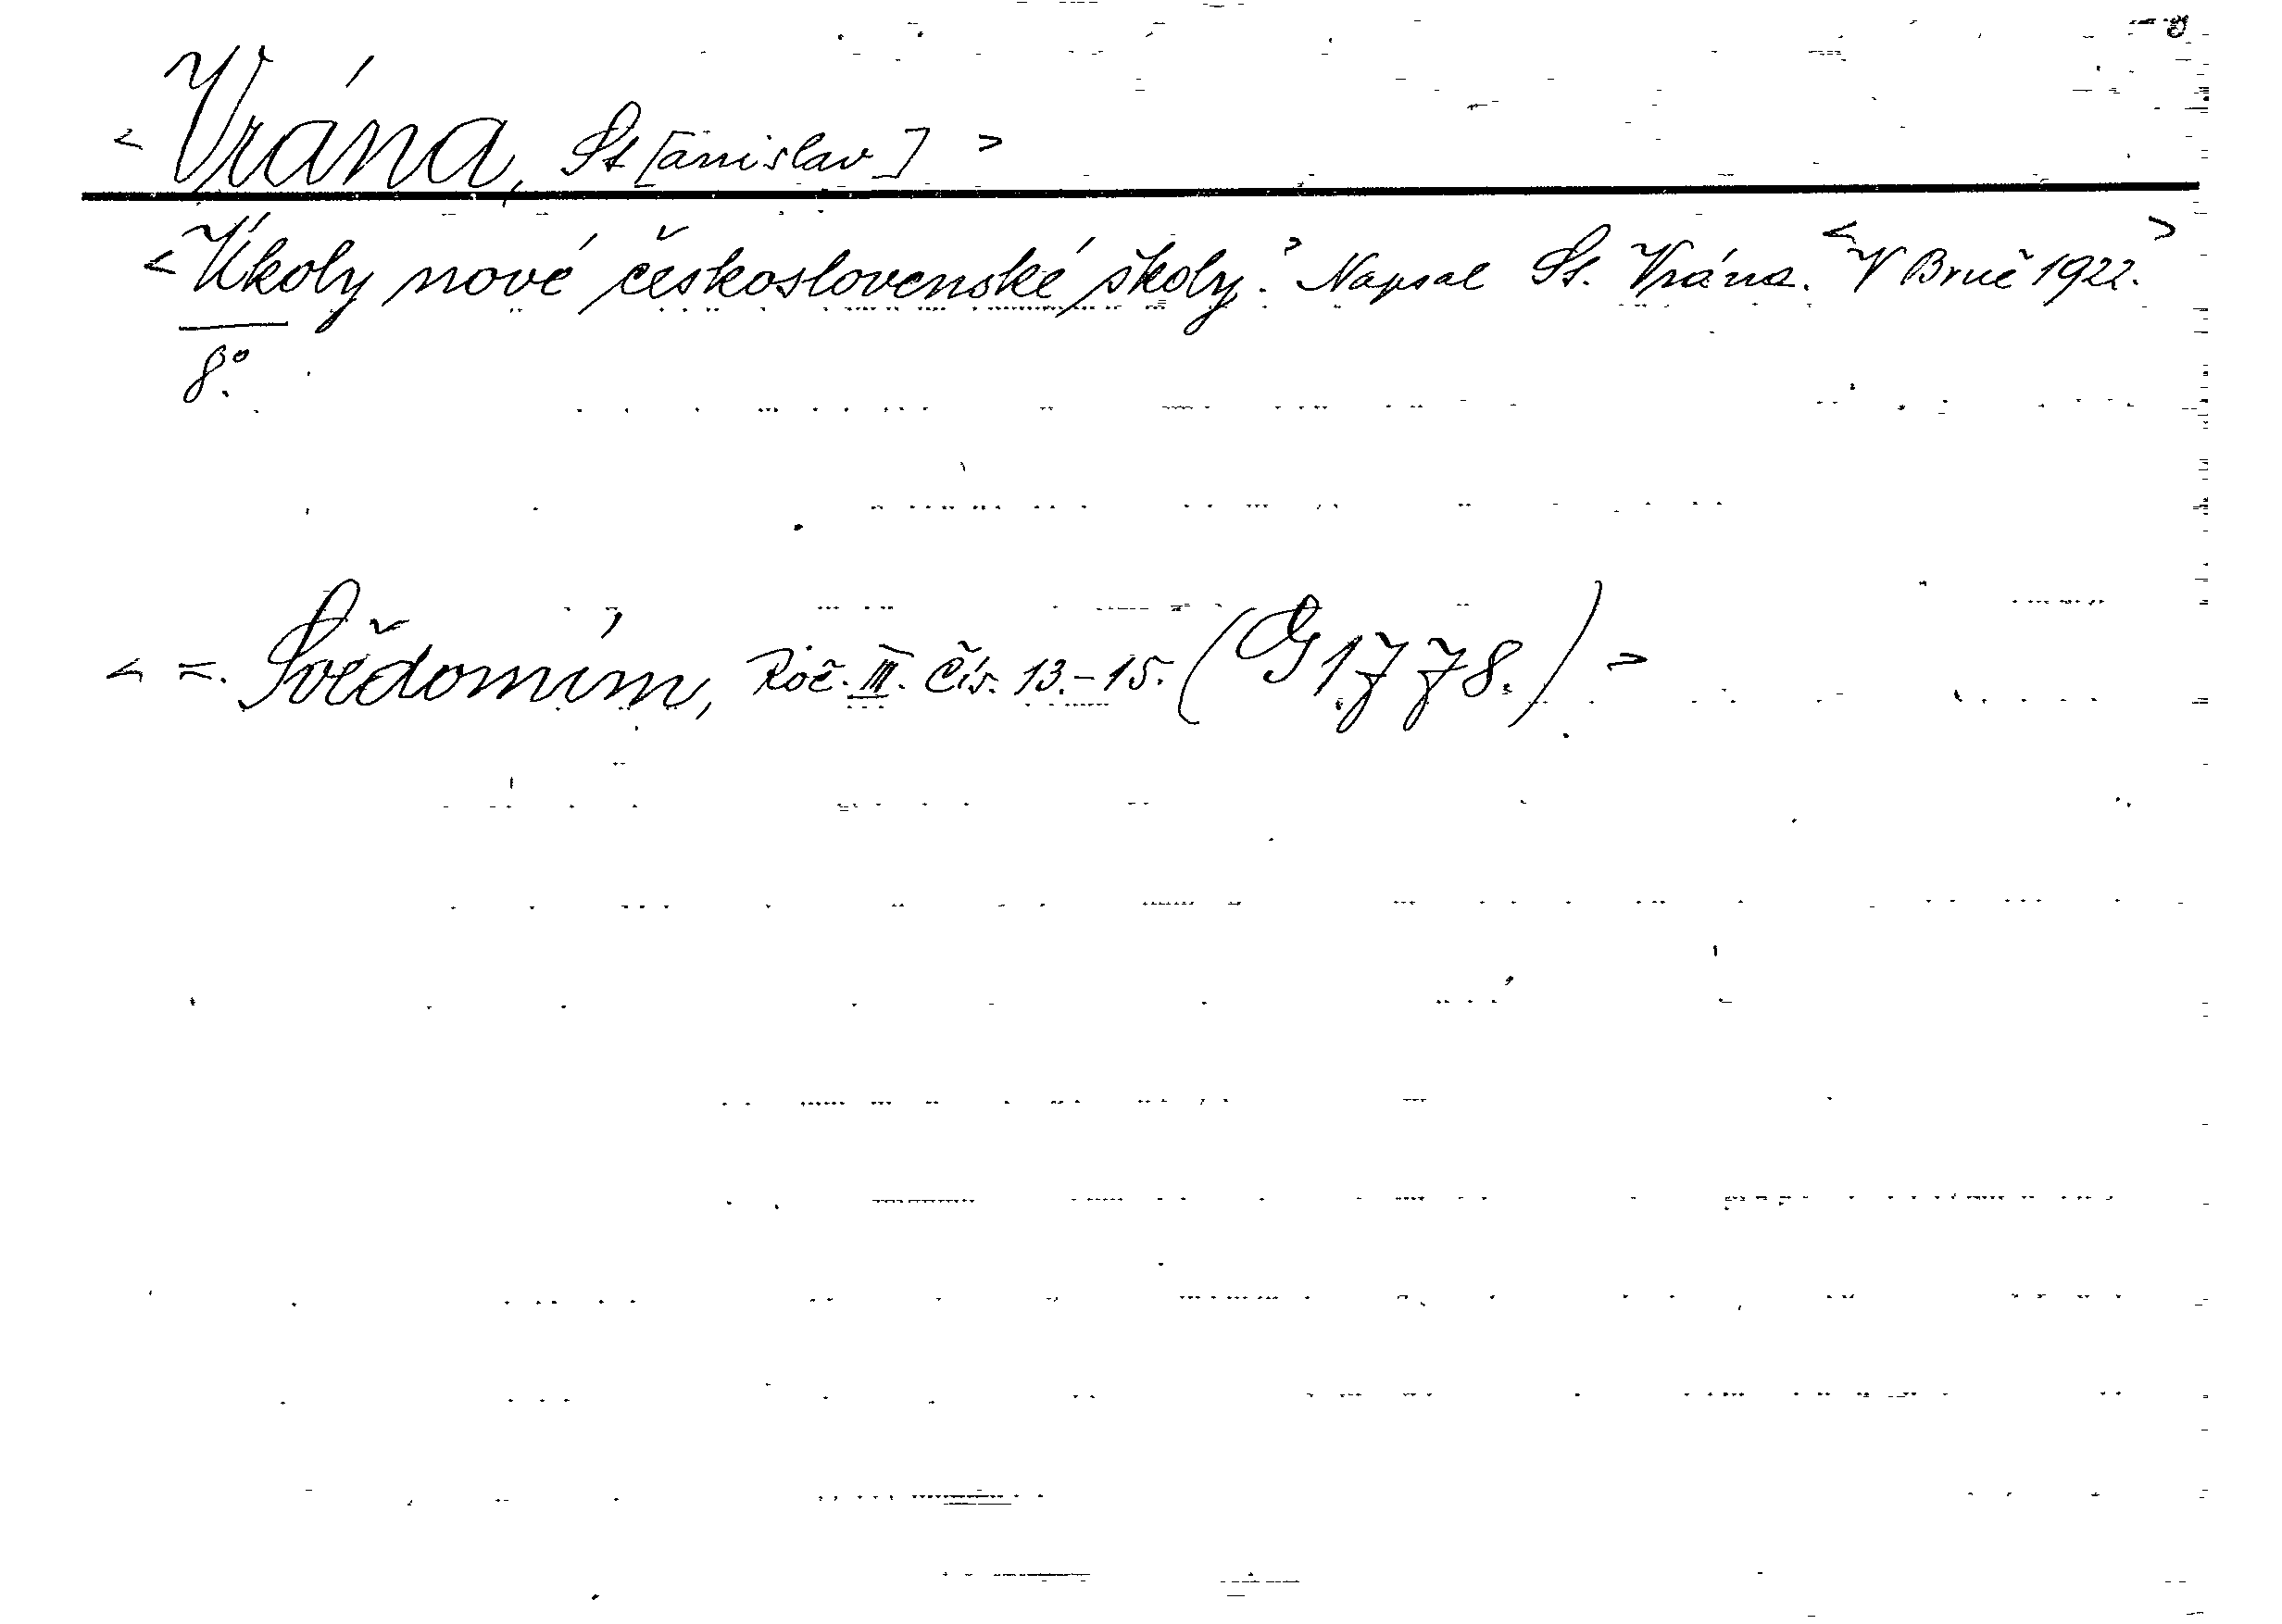 < Vrána, St[anislav] >
< Úkoly nové československé školy. > Napsal St. Vrána. < V Brně 1922. >
8°.
< =. Svědomím, Roč. III. Čís. 13.-15. (G 1778.) >